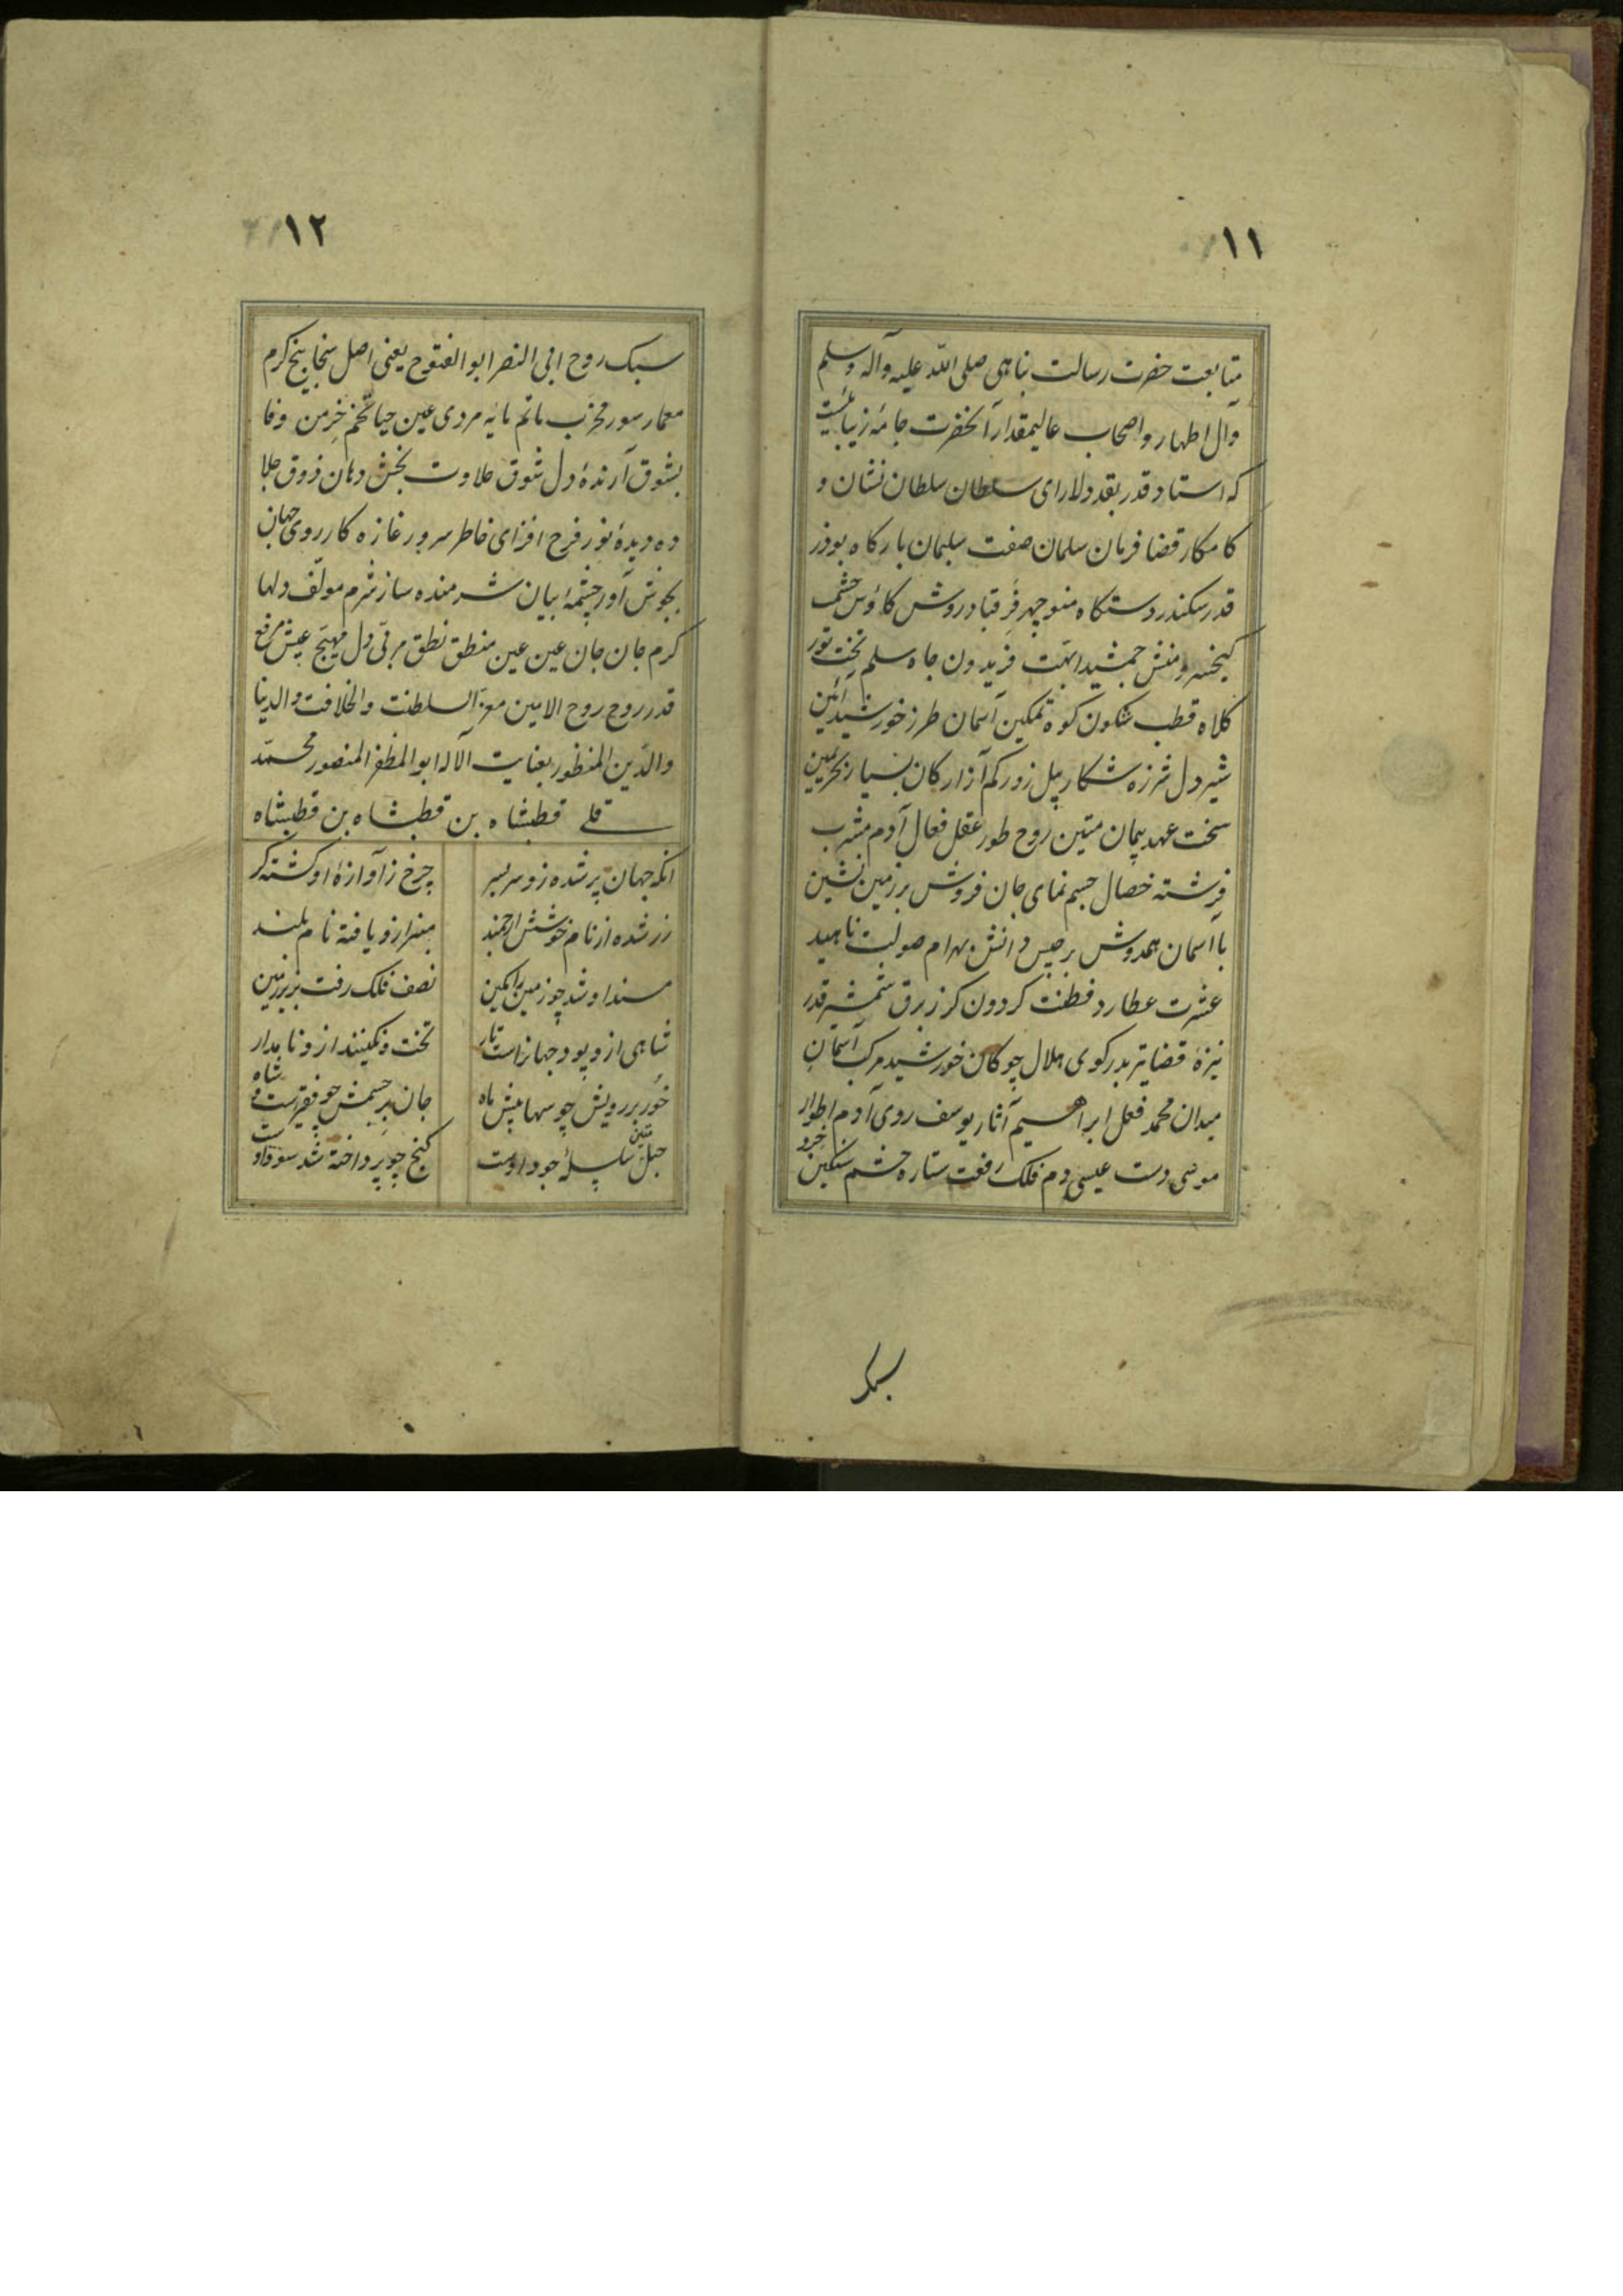 ۱۱
متابعت حضرت رسالت پناهی صلی الله علیه وآله وسلم
وآل اطهار واصحاب عالیمقدار آنحضرت جامهٔ زیبائیست
که استاد قدر بقد دلارای سلطان سلطان نشان و
کامکار قضا فرمان سلمان صفت سلیمان بارکاه بوذر
قدر سکندر دستکاه منوچهر فر قباد روش کاوس حشم
کیخسرو منش جمشید ابهت فریدون جاه سلم تخت تور
کلاه قطب سکون کوه تمکین آسمان طرز خورشید آئین
شیر دل شرزه شکار پیل زور کم آزار کان یسار بحر یمین
سخت عهد پیمان متین روح طور عقل فعال آدم مشرب
فرشته خصال جسم نمای جان فروش بر زمین نشین
با آسمان همدوش برجیس دانش بهرام صولت ناهید
عشرت عطارد فطنت کردون کرز برق شمشیر قدر
نیزه قضا تیر بدر کوی هلال چوکان خورشید مرکب آسمان
میدان محمد فعل ابراهیم آثار یوسف روی آدم اطوار
موسی دست عیسی دم فلک رفعت ستاره حشم سنکین خرد
سبک
۱۲
سبک روح ابی النصر ابو الفتوح یعنی اصل سخا بیخ کرم
معمار سور مخرب ماتم مایه مردی عین حیا تخم خرمن وفا
بشوق آرندهٔ دل شوق حلاوت بخش دهان ذوق جلا
ده دیدهٔ نور فرح افزای خاطر سرور غازه کار روی جهان
بجوش آور چشمهٔ بیان شرمنده ساز شرم مولف دلها
کرم جان جان عین عین منطق نطق مرقی دل مهیج عیش مرفع
قدر روح روح الامین معز السلطنت والخلافت والدنیا
والدین المنظور بعنایت الاله ابو المظفر المنصور محمد
قلی قطبشاه بن قطبشاه بن قطبشاه
انکه جهان پر شده زو سر بسر
چرخ ز آوازهٔ او کشته کر
زر شده از نام خوشش ارجمند
منبر ازو یافته نام بلند
مسند او شد چو زمین را مکین
نصف فلک رفت بزیر زمین
شاهی ازو پود جهانراست تار
تخت و نکینند ازو نامدار
خور بر رویش چو سها پیش ماه
جان بر جسمش چو فقیرست و شاه
حبل متین سلسلهٔ جود اوست
کنج چو پرداخته شد سود اوست